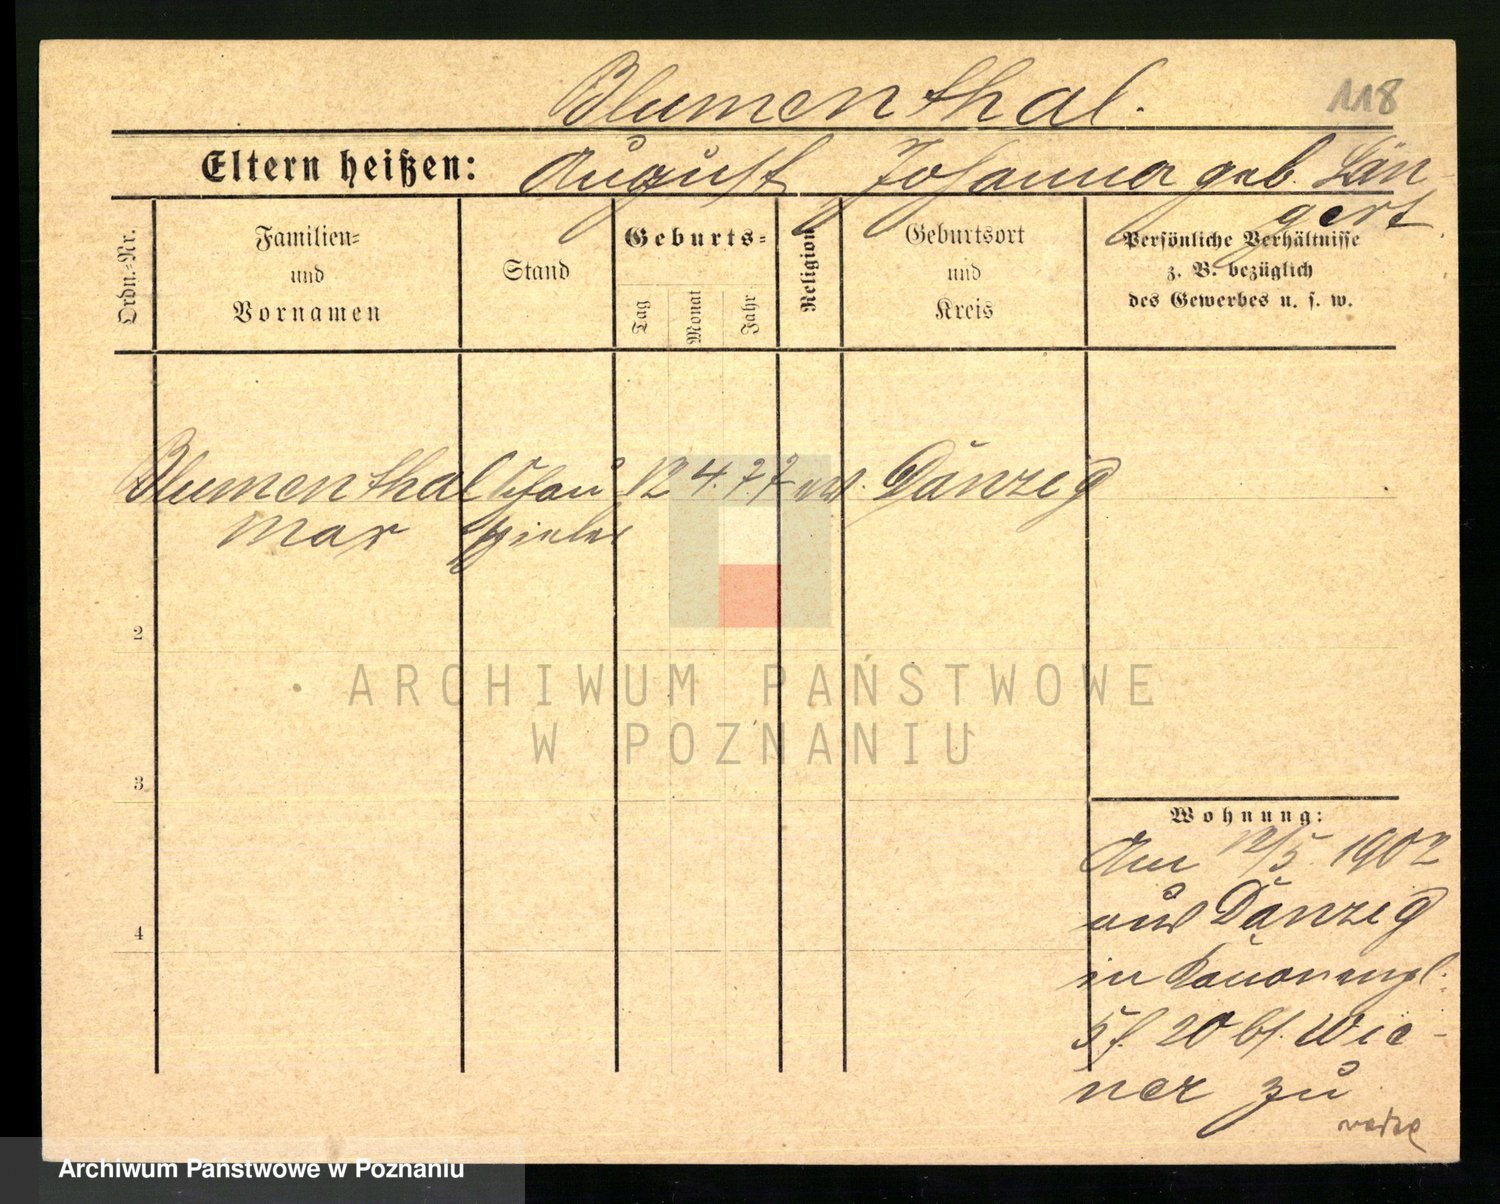 Blumenthal.
118
Eltern heißen: August Johanna geb. Län-
gert
Ordn.-Nr.
Familien-
und
Vornamen
Stand
Geburts-
Tag
Monat
Jahr
Religion
Geburtsort
und
Kreis
Persönliche Verhältnisse
z. B. bezüglich
des Gewerbes u. s. w.
Blumenthal Schau 12 4. 77 ev. Danzig
Max spieler
2
ARCHIWUM PAŃSTWOWE
W POZNANIU
3
Wohnung:
Am 12/5 1902
4
aus Danzig
in
20 bs. Wie-
ner zu
Archiwum Państwowe w Poznaniu